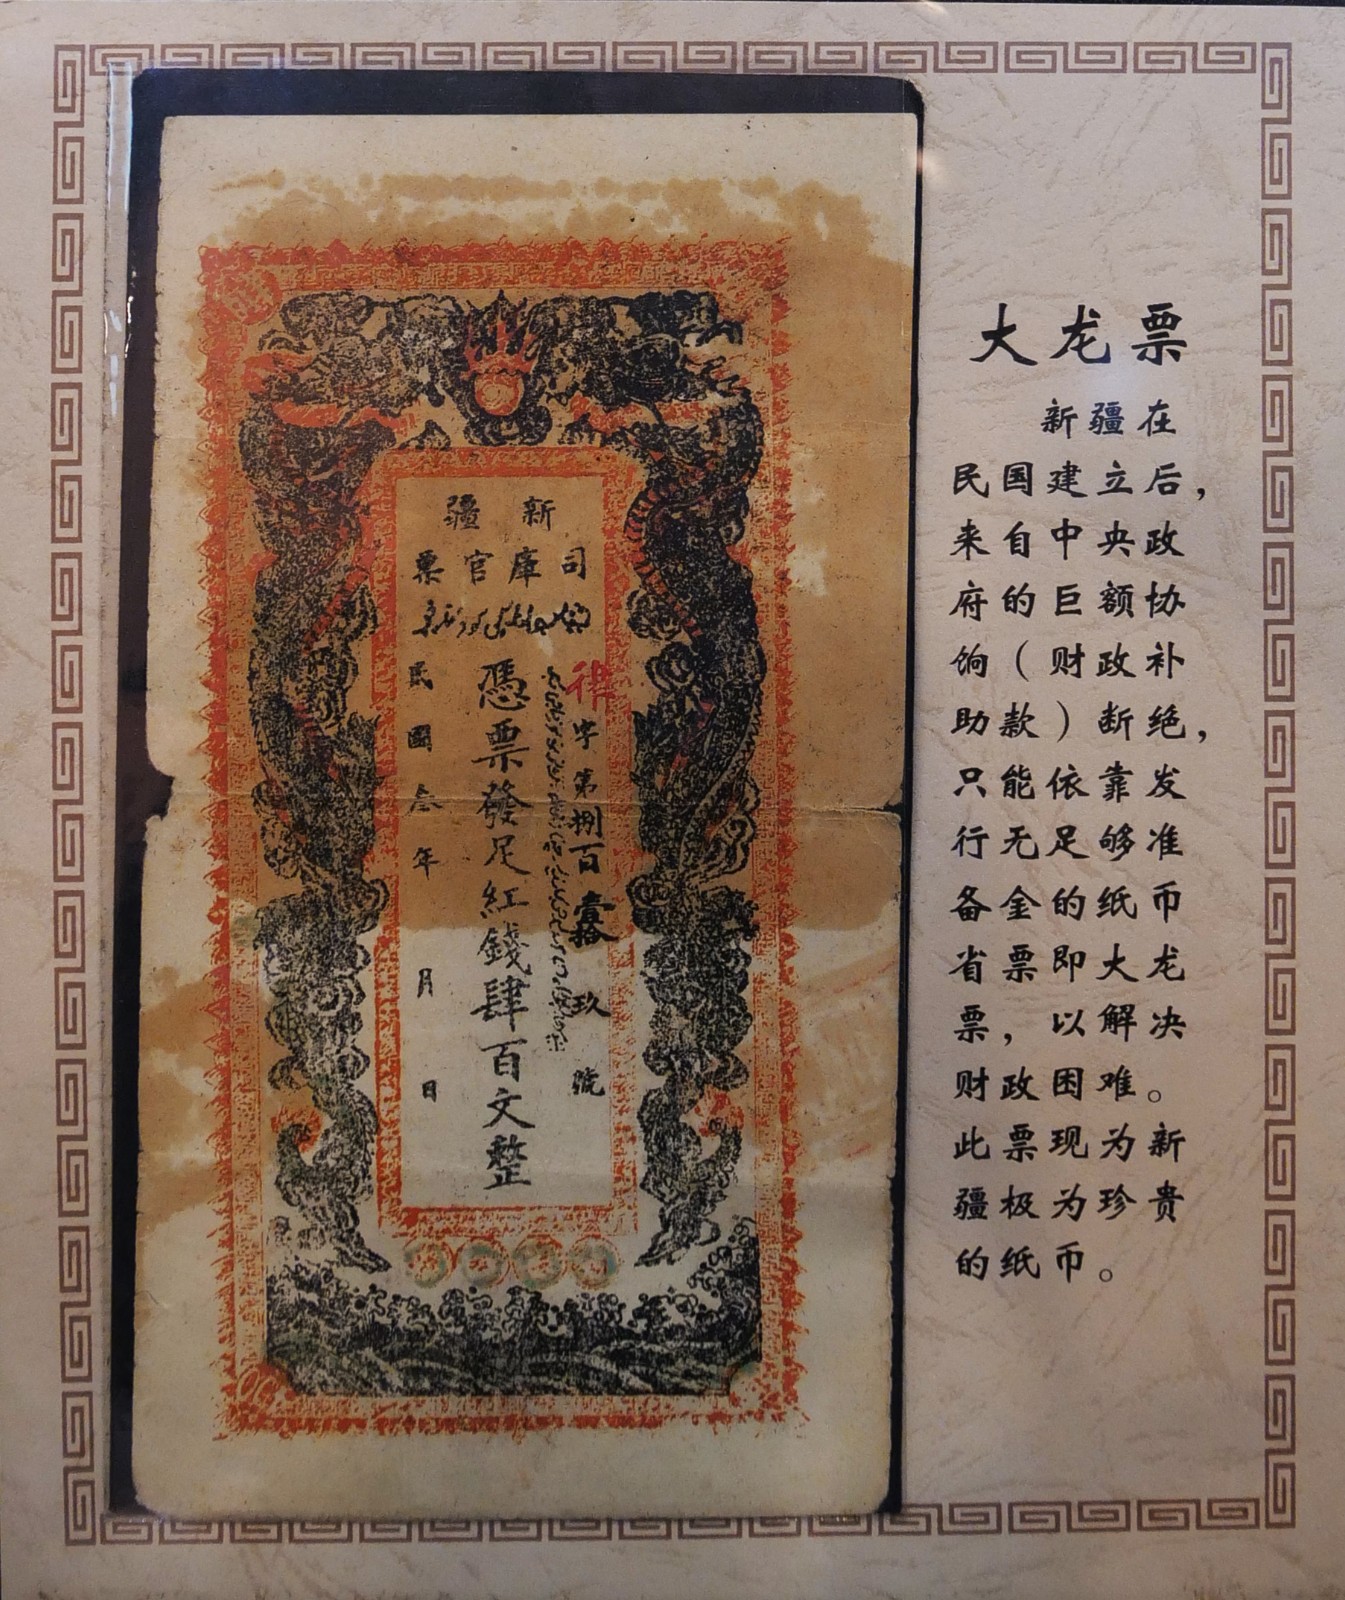 新疆
司庫官票
律字第捌百壹拾玖號
憑票發足紅錢肆百文整
民國叁年 月 日
大龙票
新疆在
民国建立后，
来自中央政
府的巨额协
饷（财政补
助款）断绝，
只能依靠发
行无足够准
备金的纸币
省票即大龙
票，以解决
财政困难。
此票现为新
疆极为珍贵
的纸币。